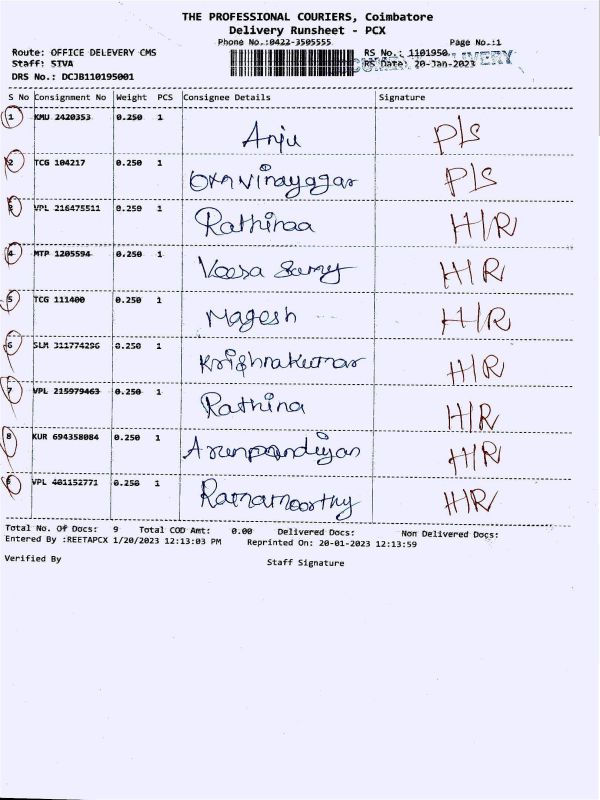 THE PROFESSIONAL COURIERS, Coimbatore
Delivery Runsheet - PCX
Phone No.:0422-3505555 Page No.:1
Route: OFFICE DELEVERY CMS RS No.: 1101950
Staff: SIVA RS Date: 20-Jan-2023
DRS No.: DCJB110195001
S No Consignment No Weight PCS Consignee Details Signature
1 KMU 2420353 0.250 1 Anju P/S
2 TCG 104217 0.250 1 Vinayagar P/S
3 VPL 216475511 0.250 1 Rathinaa H/R
4 MTP 1205594 0.250 1 Veera Samy H/R
5 TCG 111400 0.250 1 Magesh H/R
6 SLM 311774296 0.250 1 Krishnakumar H/R
7 VPL 215979463 0.250 1 Rathina H/R
8 KUR 694358084 0.250 1 Arunpandiyan H/R
9 VPL 401152771 0.250 1 Ramamoorthy H/R
Total No. Of Docs: 9 Total COD Amt: 0.00 Delivered Docs: Non Delivered Docs:
Entered By :REETAPCX 1/20/2023 12:13:03 PM Reprinted On: 20-01-2023 12:13:59
Verified By Staff Signature